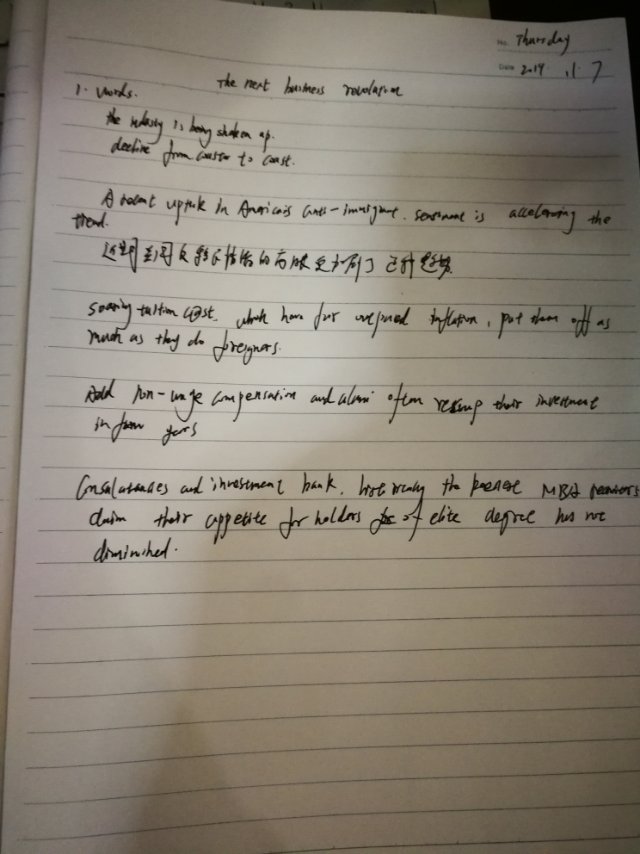 No. Thursday
Date 2019 11 7
The next business revolution
1. words.
the industry is being shaken up.
decline from coast to coast.
A recent uptick in America's anti-immigrant. sentiment is accelerating the
trend.
soaring tuition cost. which have far outpaced inflation, put them off as
much as they do foreigners.
Add non-wage compensation and alumni often recoup their investment
in four years
Consultancies and investment bank, historically the keenest MBA recruiters
claim their appetite for holders of elite degree has not
diminished.